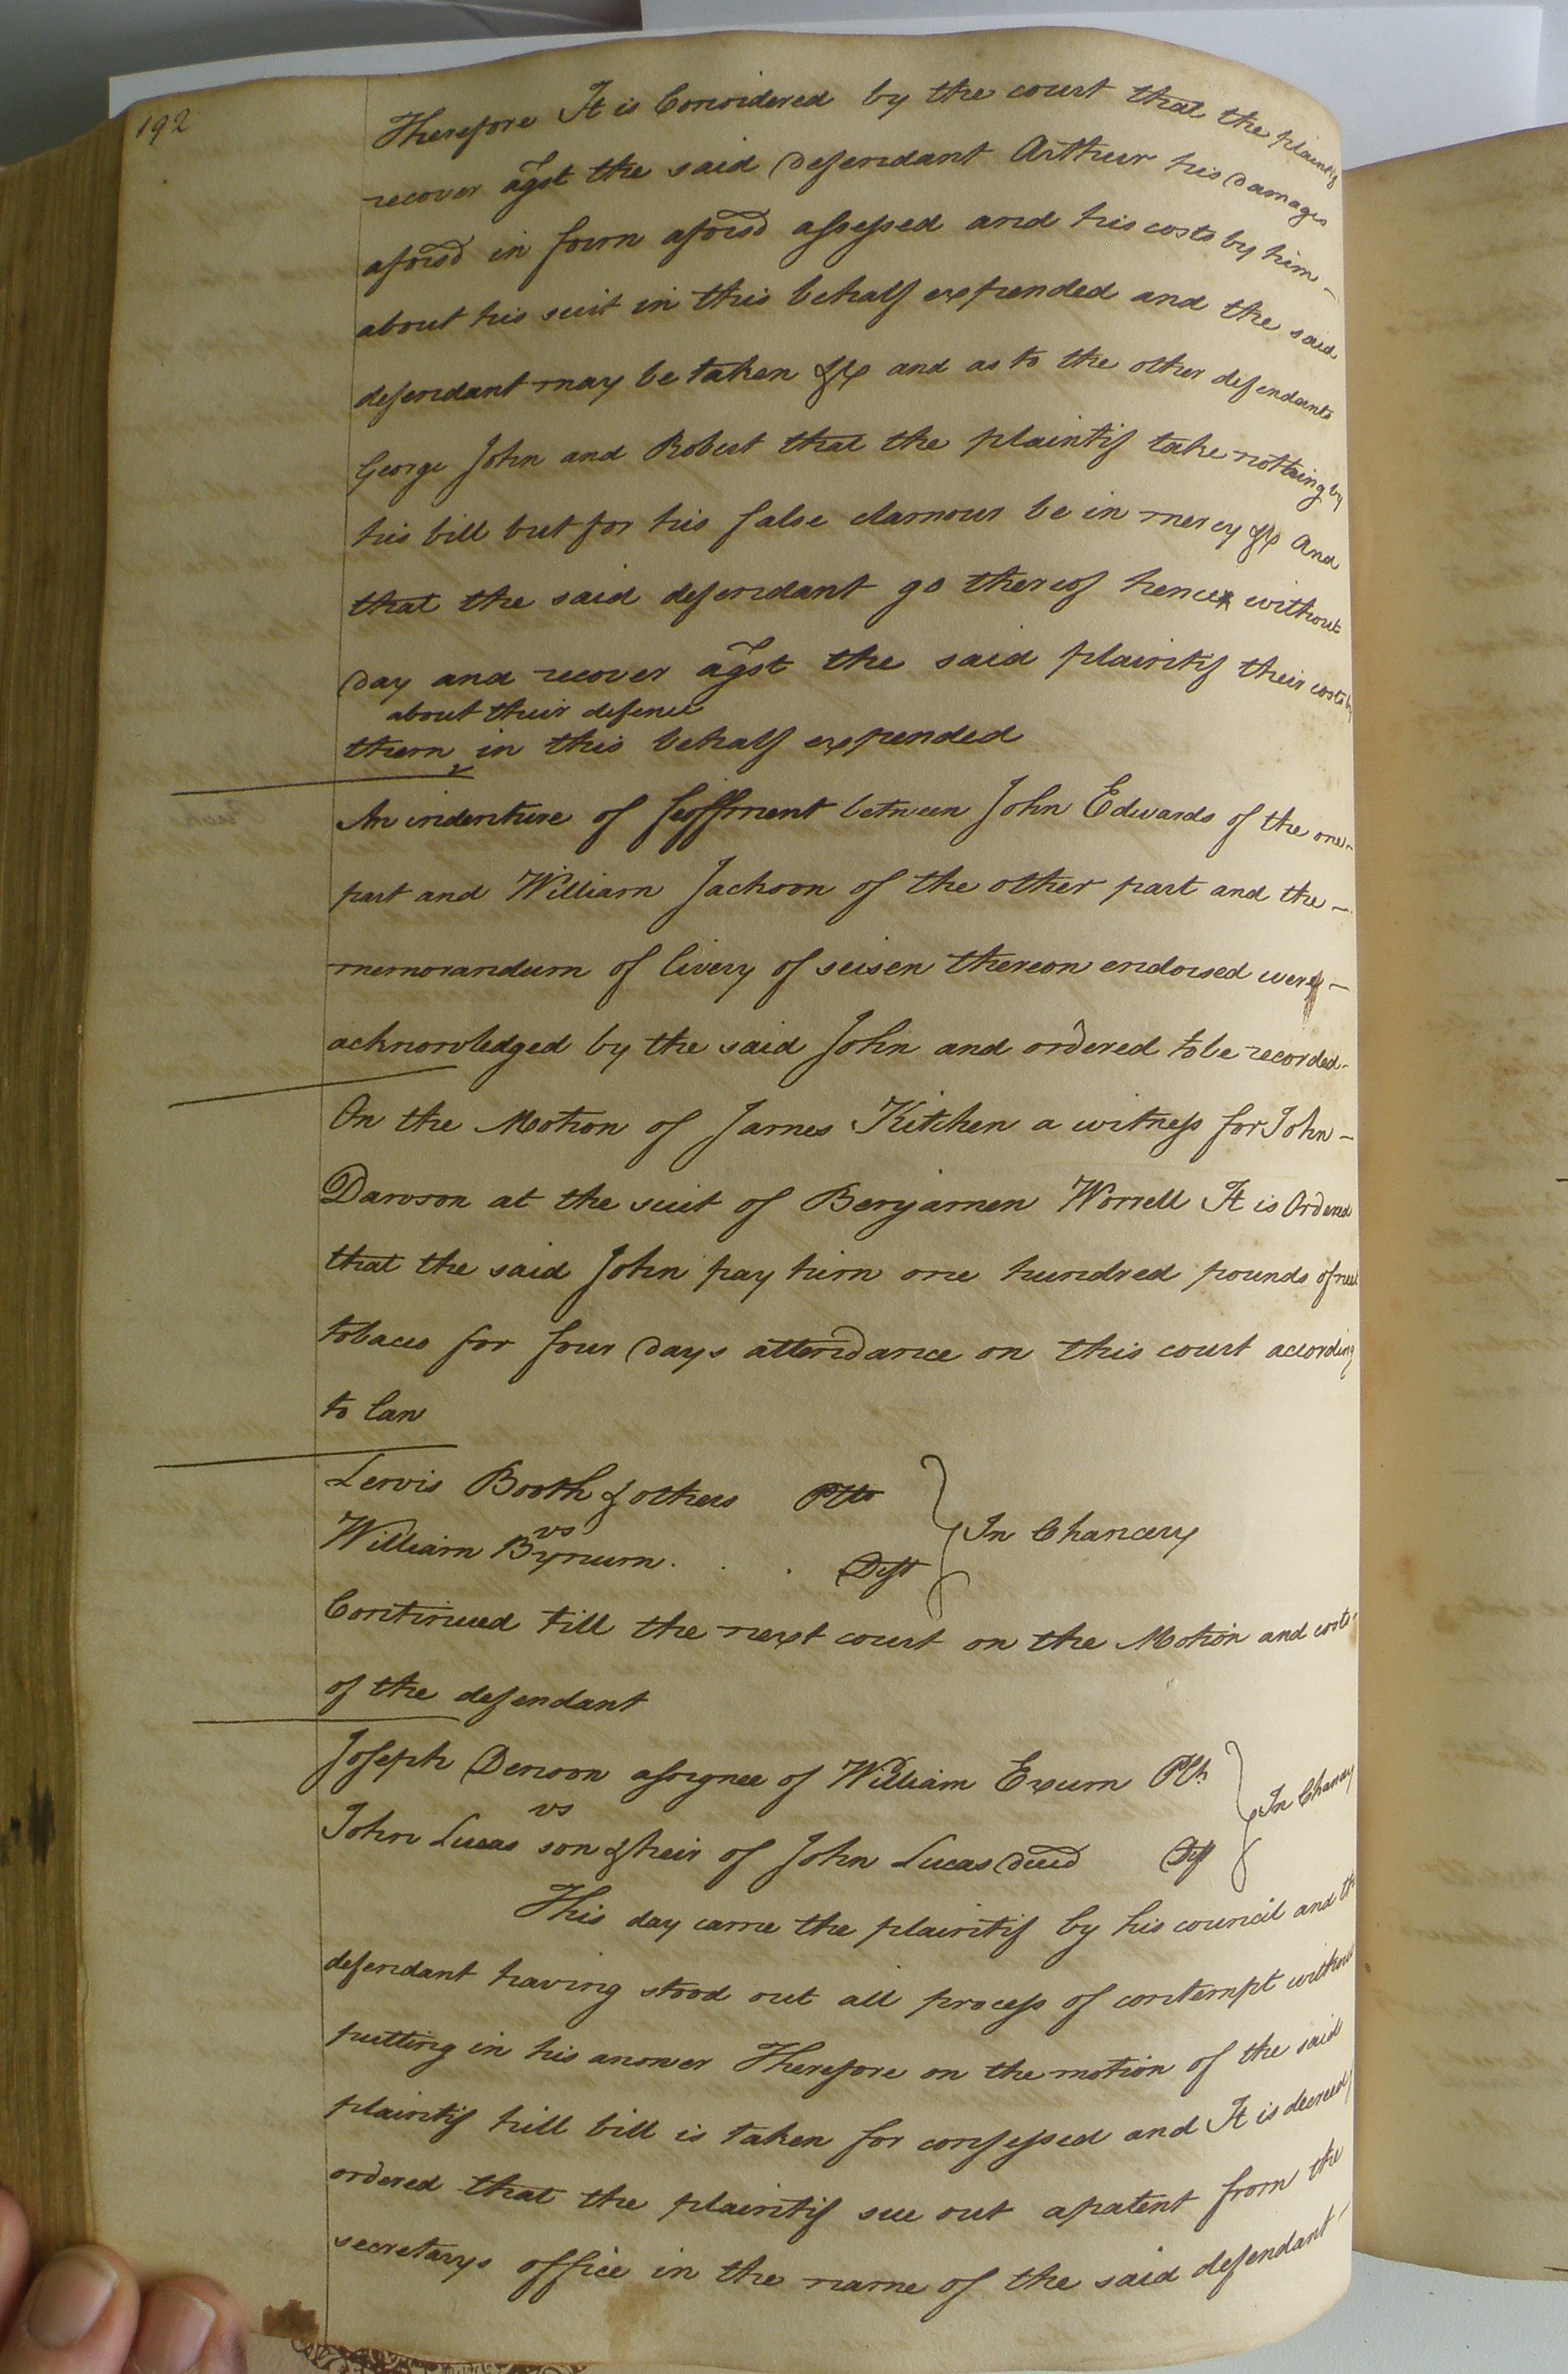 192
Therefore It is Considered by the court that the plaintif
recover agst the said Defendant Arthur his Damages
aforsd in form aforsd assessed and his costs by him -
about his suit in this behalf expended and the said
defendant may be taken &c and as to the other defendants
George John and Robert that the plaintif take nothing by
his bill but for his false clamour be in mercy &c And
that the said defendant go thereof hence without
Day and recover agst the said plaintif their costs by
about their defence
them in this behalf expended
An indenture of feoffment between John Edwards of the one -
part and William Jackson of the other part and the -
memorandum of livery of seisen thereon endorsed were -
acknowledged by the said John and ordered to be recorded -
On the Motion of James Kitchen a witness for John -
Dawson at the suit of Benjamen Worrell It is Ordered
that the said John pay him one hundred pounds of neet
tobaco for four Days attendance on this court acording
to law
Lewis Booth & others Plts
vs
William Bynum . . . Deft
In Chancery
Continued till the next court on the Motion and costs
of the defendant
Joseph Denson assignee of William Exum Plt
vs
John Lucas son & heir of John Lucas decd Deft
In Chancy
This day came the plaintif by his council and the
defendant having stood out all process of contempt without
putting in his answer Therefore on the motion of the said
plaintif hill bill is taken for confessed and It is decreed
ordered that the plaintif sue out a patent from the
secretarys office in the name of the said defendant -